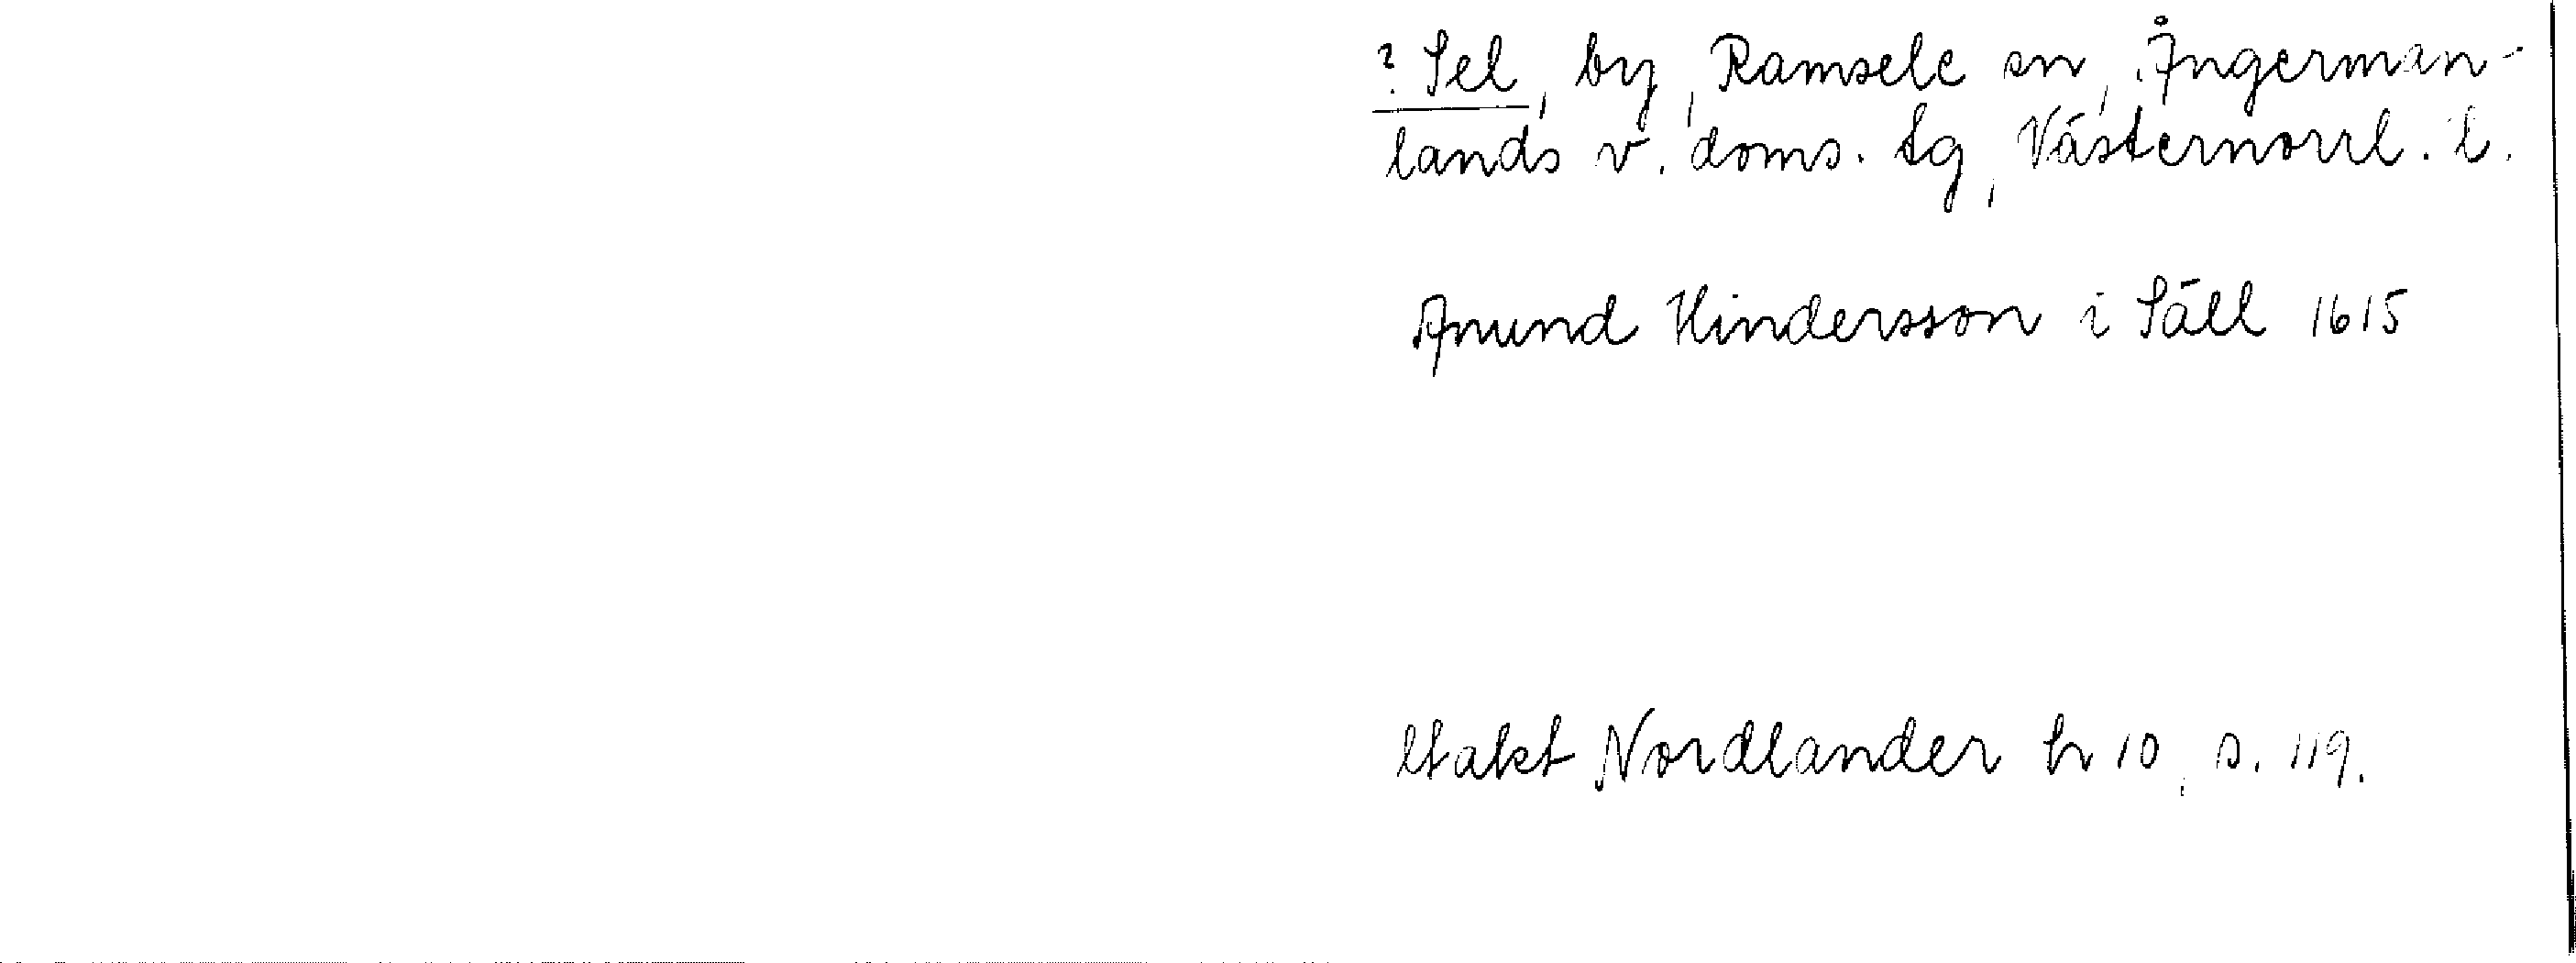 ? Sel, by, Ramsele sn, Ångerman-
lands v. doms. tg, Västernorrl. l.
Anund Hindersson i Säll 1615
Utakt Nordlander h 10, s. 119.